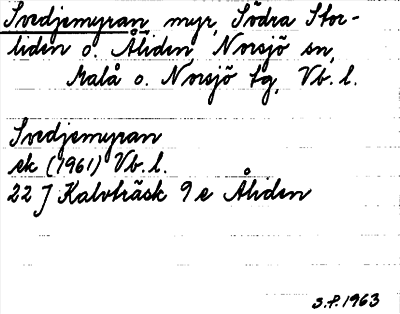 Svedjemyran myr, Södra Stor-
liden o. Åliden Norsjö sn,
Malå o. Norsjö tg, Vb. l.
Svedjemyran
ek (1961) Vb. l.
22 J Kalvträsk 9 e Åliden
S.P. 1963